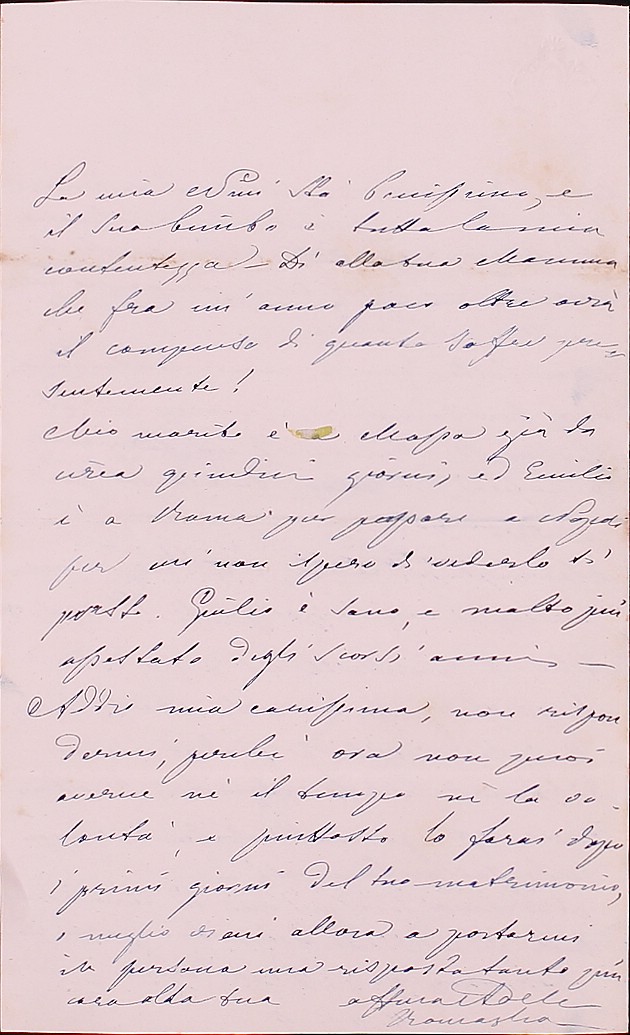 La mia Ninì stà benissimo, e
il suo bimbo è tutta la mia
contentezza – Dì alla tua Mamma
che fra un'anno poco oltre avrà
il compenso di quanto soffre pre=
sentemente!
Mio marito è a Massa già da
circa quindici giorni, ed Emilio
è a Roma per passare a
per cui non spero di vederlo sì
presto. Giulio è sano, e molto più
assettato degli scorsi anni –
Addio mia carissima, non rispon
dermi, perchè ora non puoi
averne nè il tempo nè la vo-
lontà, e piuttosto lo farai dopo
i primi giorni del tuo matrimonio,
o meglio vieni allora a portarmi
in persona una risposta tanto più
cara alla tua affma Adele